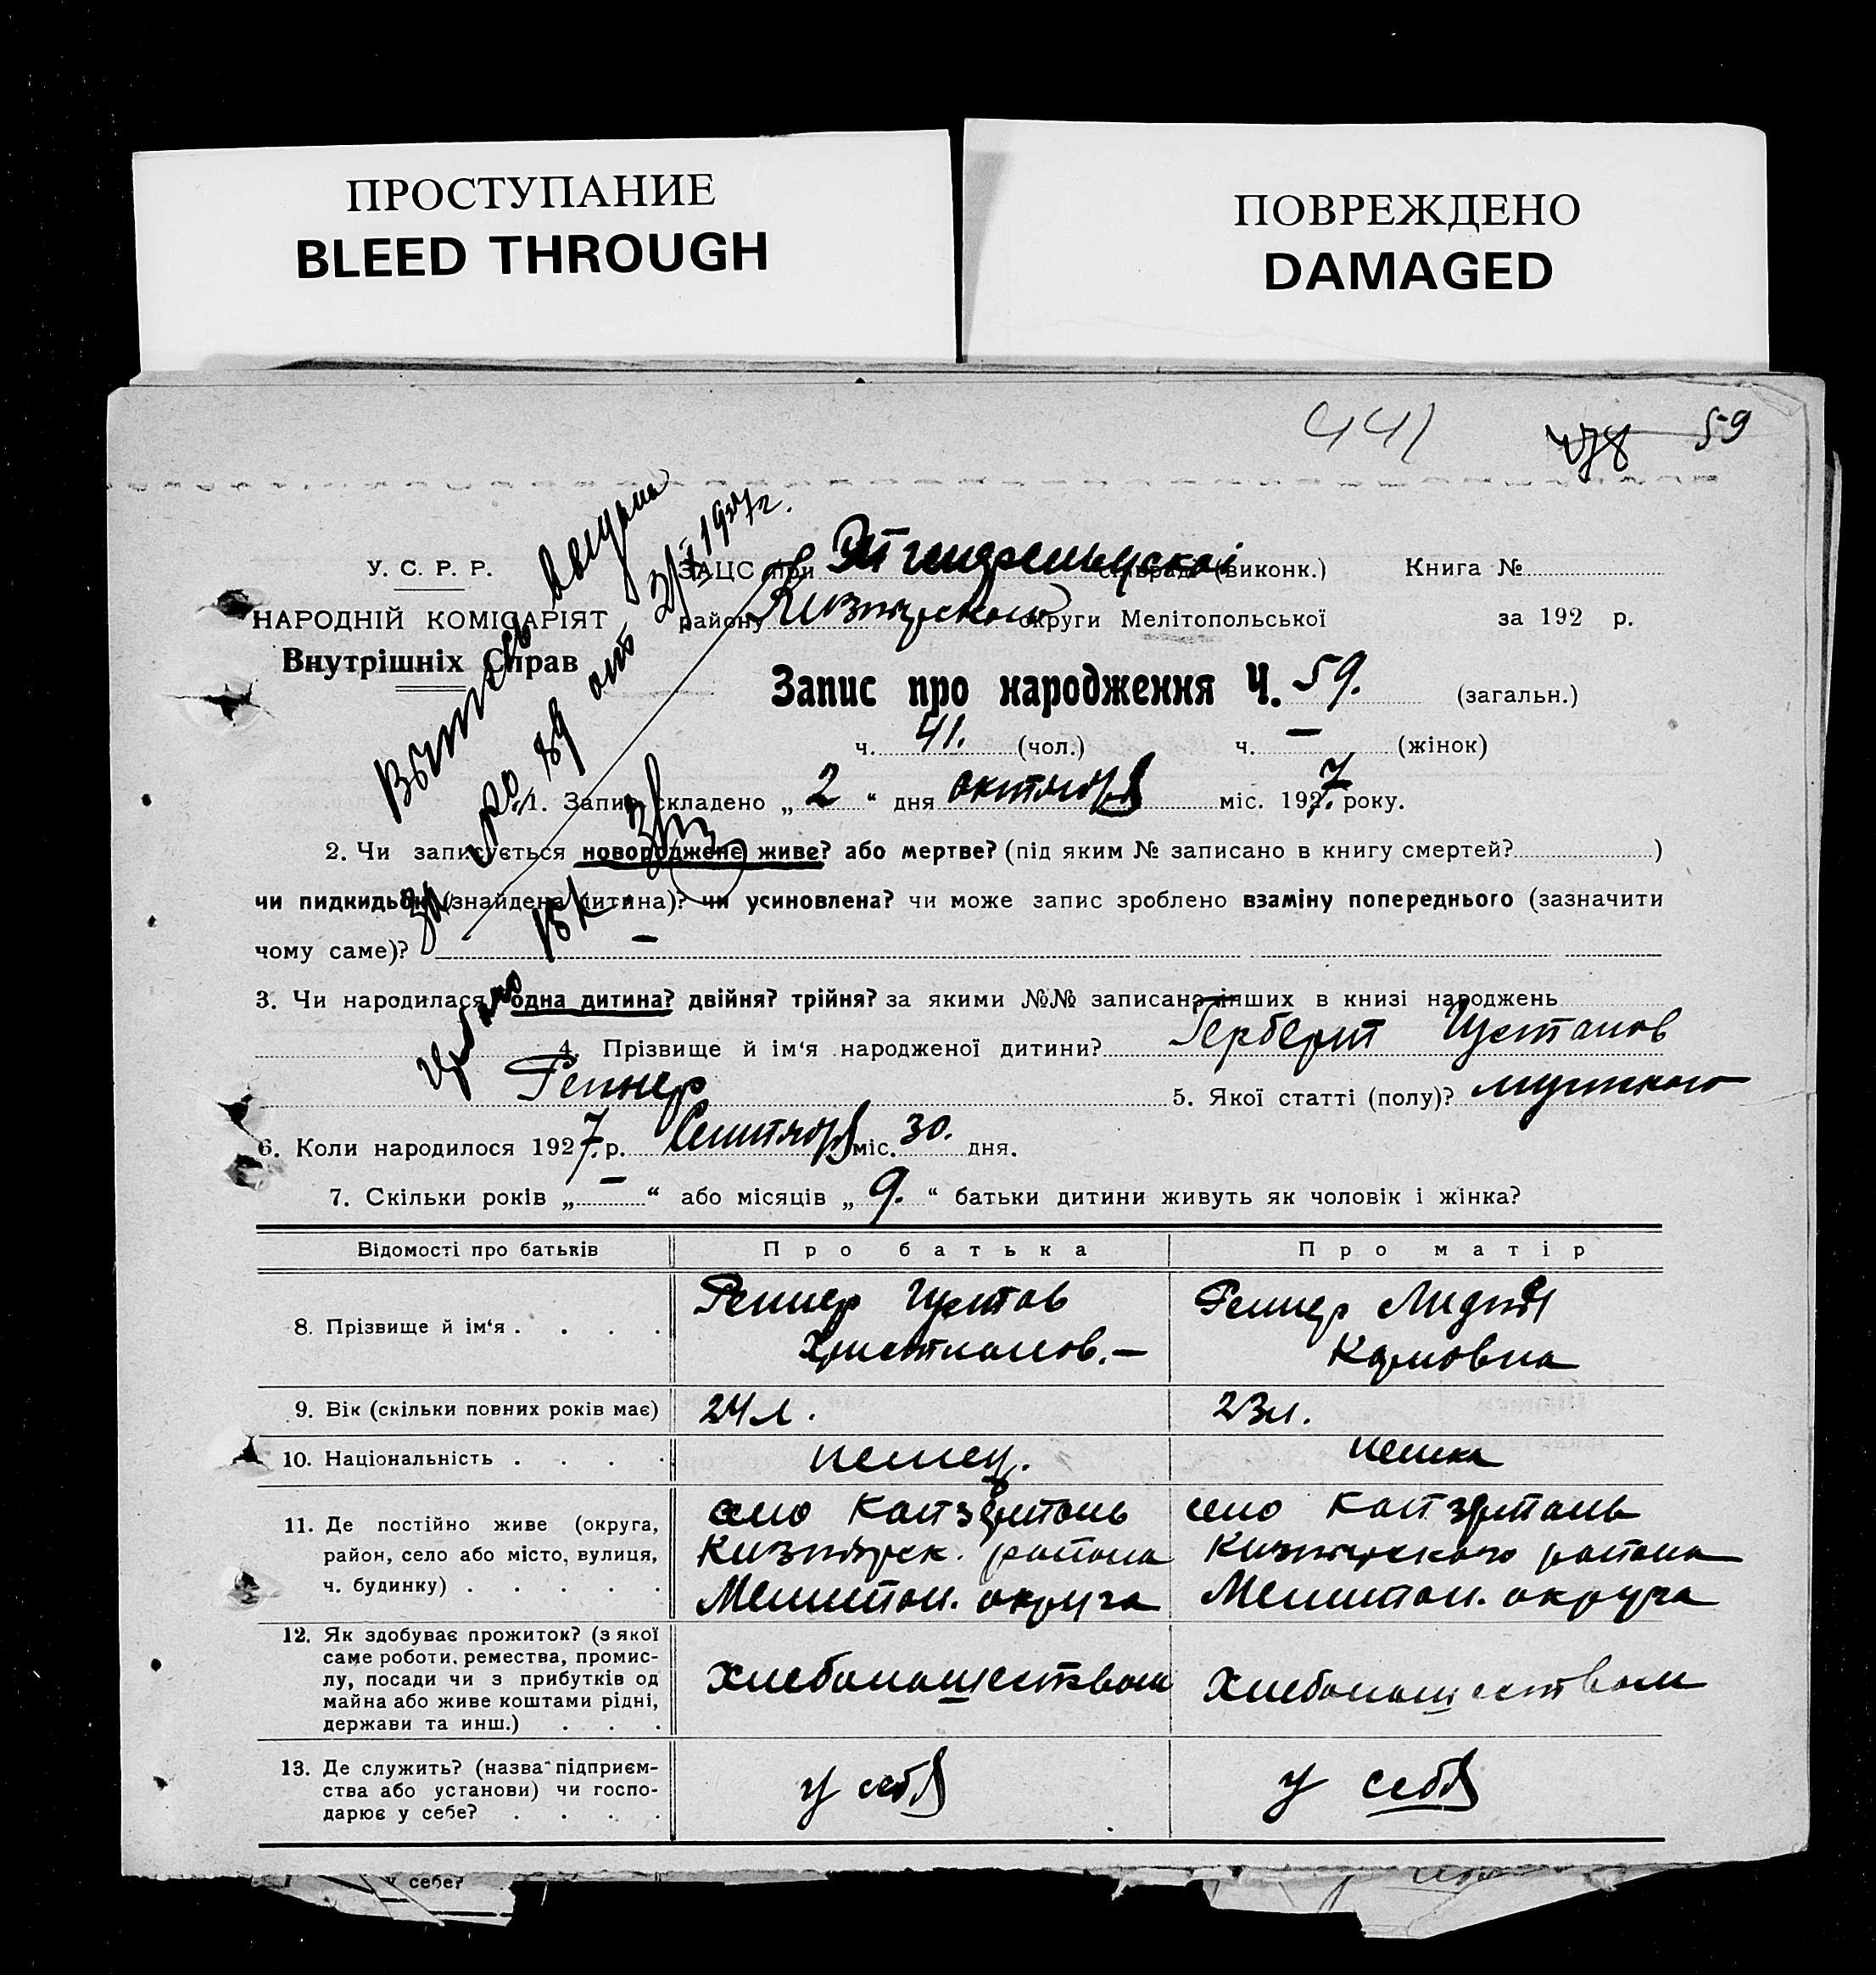 ПРОСТУПАНИЕ
BLEED THROUGH
ПОВРЕЖДЕНО
DAMAGED
441 478 59
У. С. Р. Р.
НАРОДНІЙ КОМІСАРІЯТ
Внутрішніх Справ
ЗАЦС при сільраді (виконк.) Книга №
району округи Мелітопольської за 192 р.
Запис про народження Ч. 59. (загальн.)
ч. 41. (чол.) ч. — (жінок)
1. Запис складено „ 2 “ дня октября міс. 1927. року.
2. Чи записується новороджене живе? або мертве? (під яким № записано в книгу смертей? )
чи пидкидьок (знайдена дитина)? чи усиновлена? чи може запис зроблено взаміну попереднього (зазначити
чому саме)? —
3. Чи народилася одна дитина? двійня? трійня? за якими №№ записано інших в книзі народжень
4. Прізвище й ім‘я народженої дитини? Герберт Густавов
Реннер 5. Якої статті (полу)? мужского
6. Коли народилося 1927. р. Сентября міс. 30. дня.
7. Скільки років „ — “ або місяців „ 9. “ батьки дитини живуть як чоловік і жінка?
Відомості про батьків Про батька Про матір
8. Прізвище й ім‘я . . . . Реннер Густав Христианов. — Реннер Лидия Карловна
9. Вік (скільки повних років має) 24 л. 23 л.
10. Національність . . . . немец. немка
11. Де постійно живе (округа, село село
район, село або місто, вулиця, района района
ч. будинку) . . . . . Мелитоп. округа Мелитоп. округа
12. Як здобуває прожиток? (з якої
саме роботи, ремества, промис-
лу, посади чи з прибутків од хлебопашеством хлебопашеством
майна або живе коштами рідні,
держави та инш.) . . .
13. Де служить? (назва підприєм-
ства або установи) чи госпо- у себя у себя
дарює у себе? . . . .
у себе?